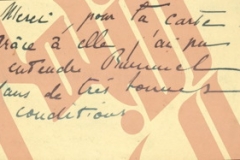 Merci, pour ta carte
grâce à elle j'ai pu
entendre
dans de très bonnes
conditions